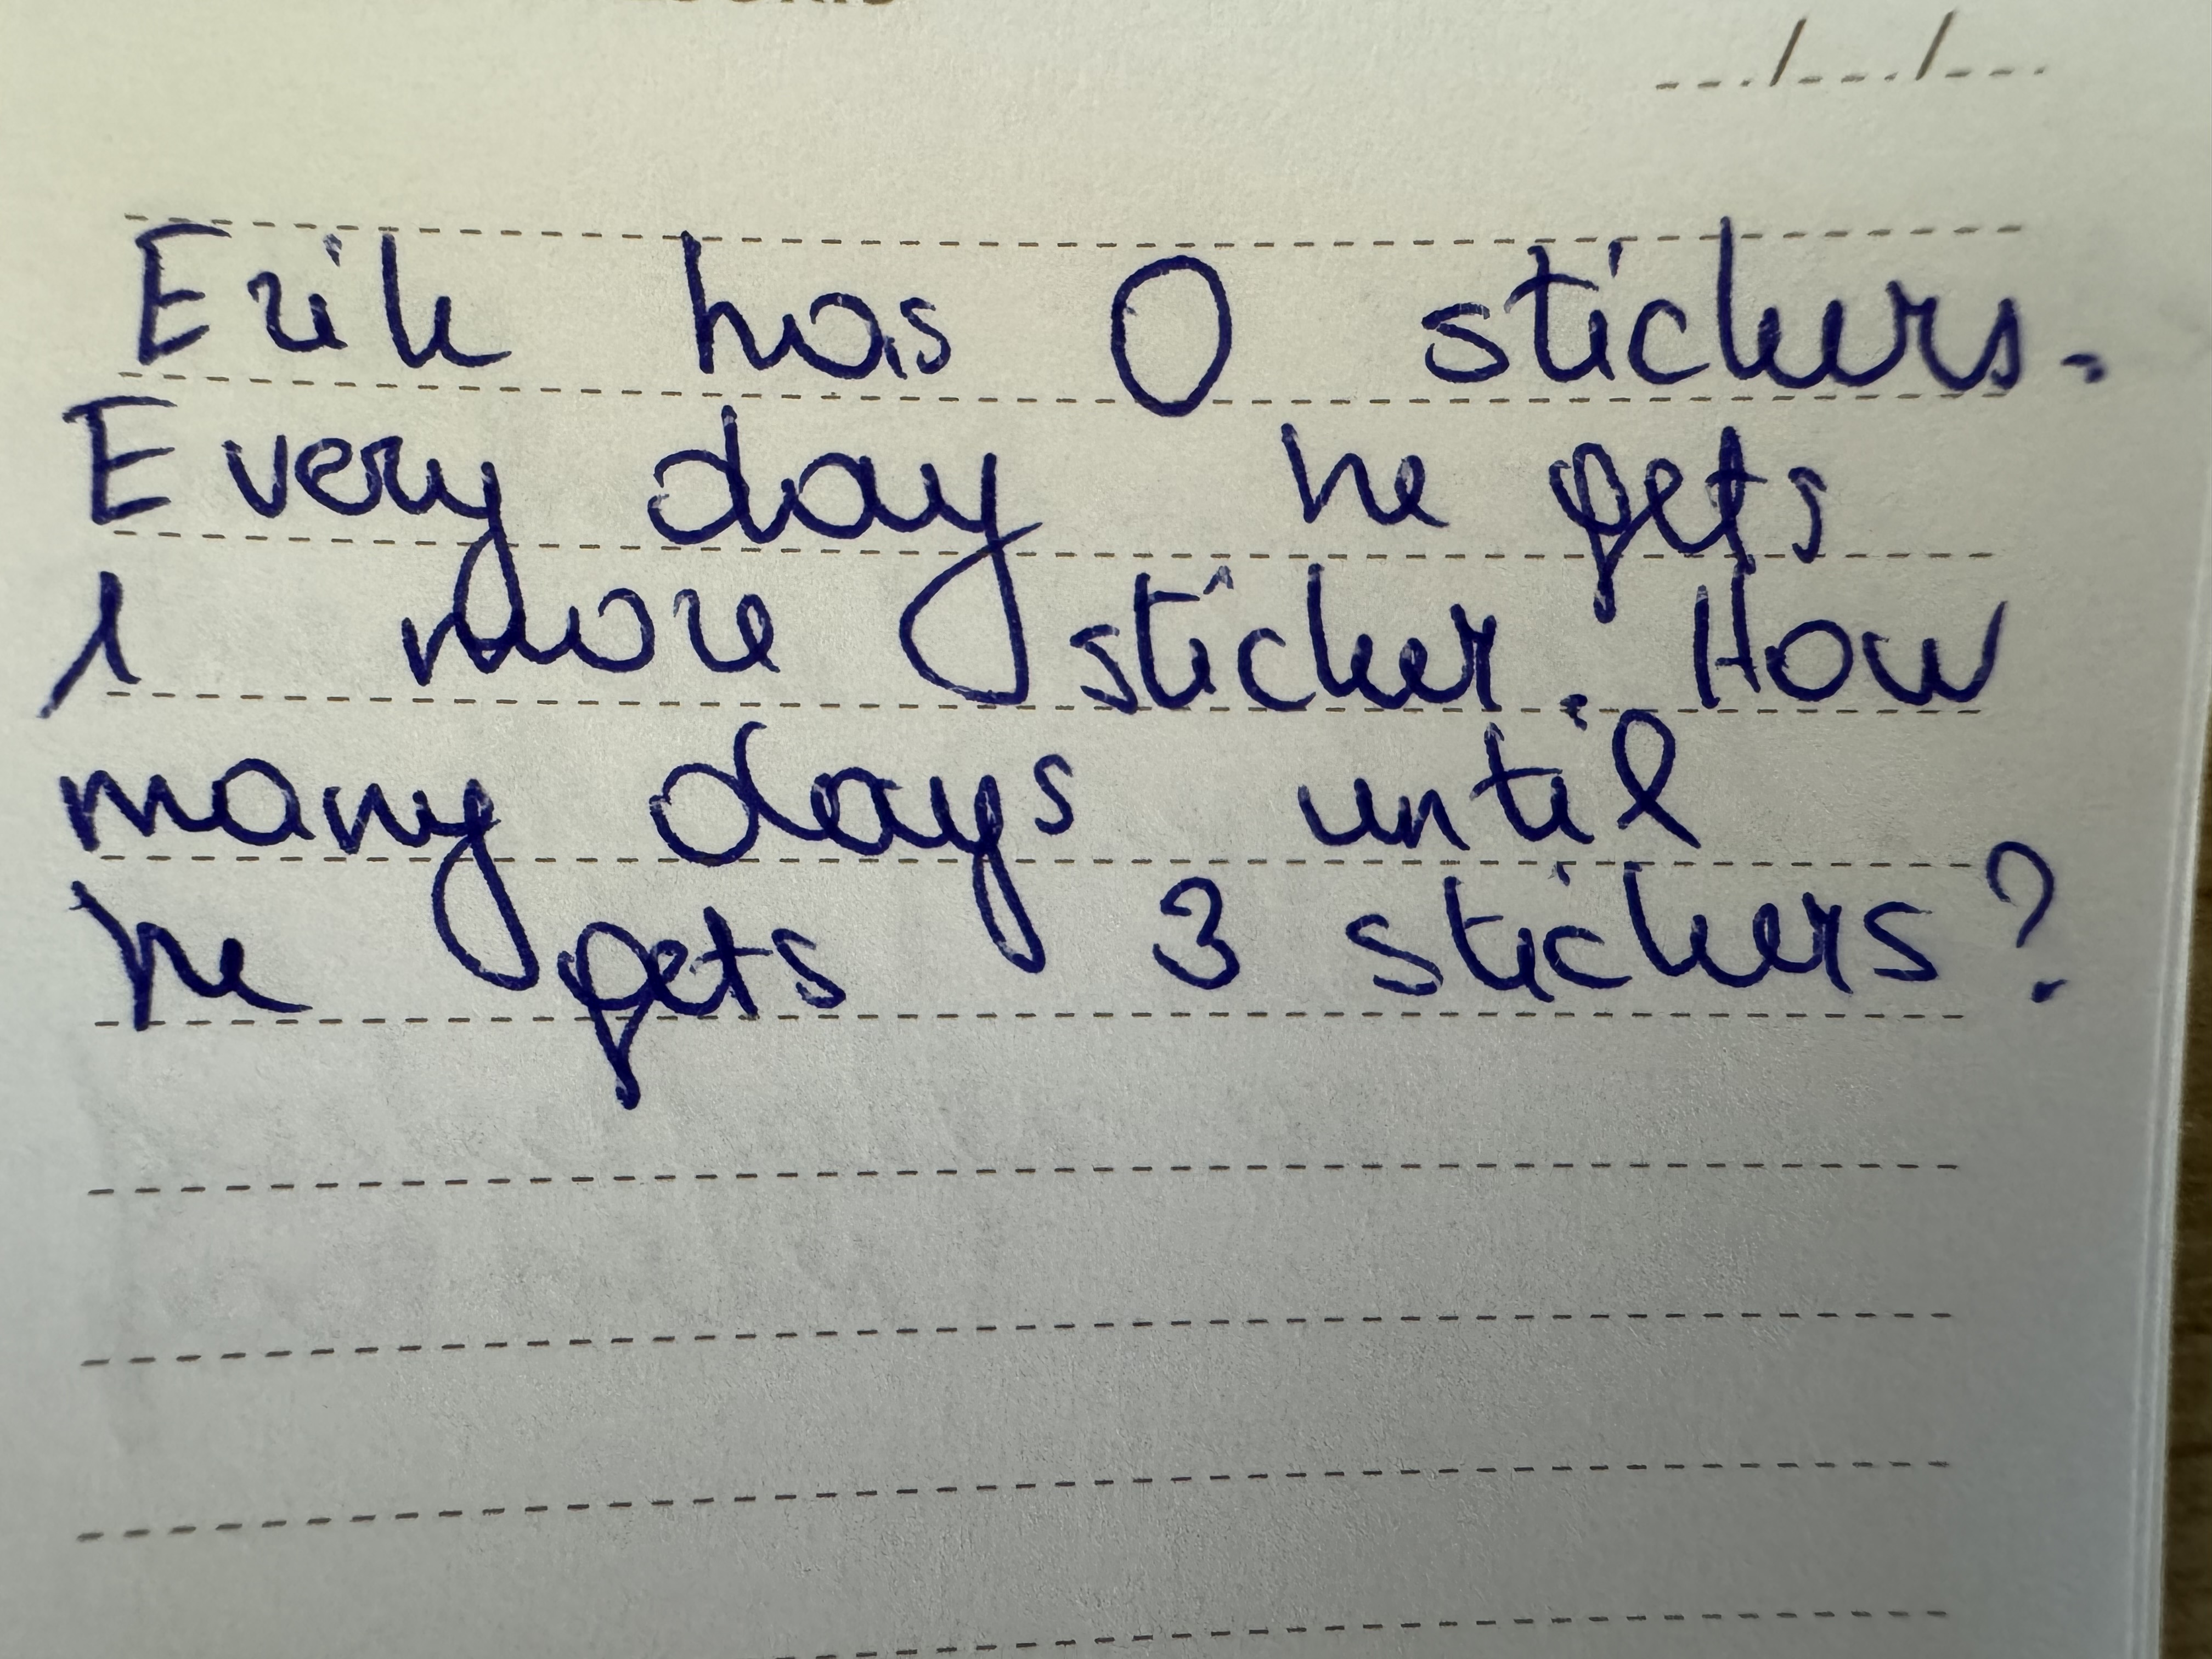 Erik has 0 stickers.
Every day he gets
1 more sticker. How
many days until
he gets 3 stickers?